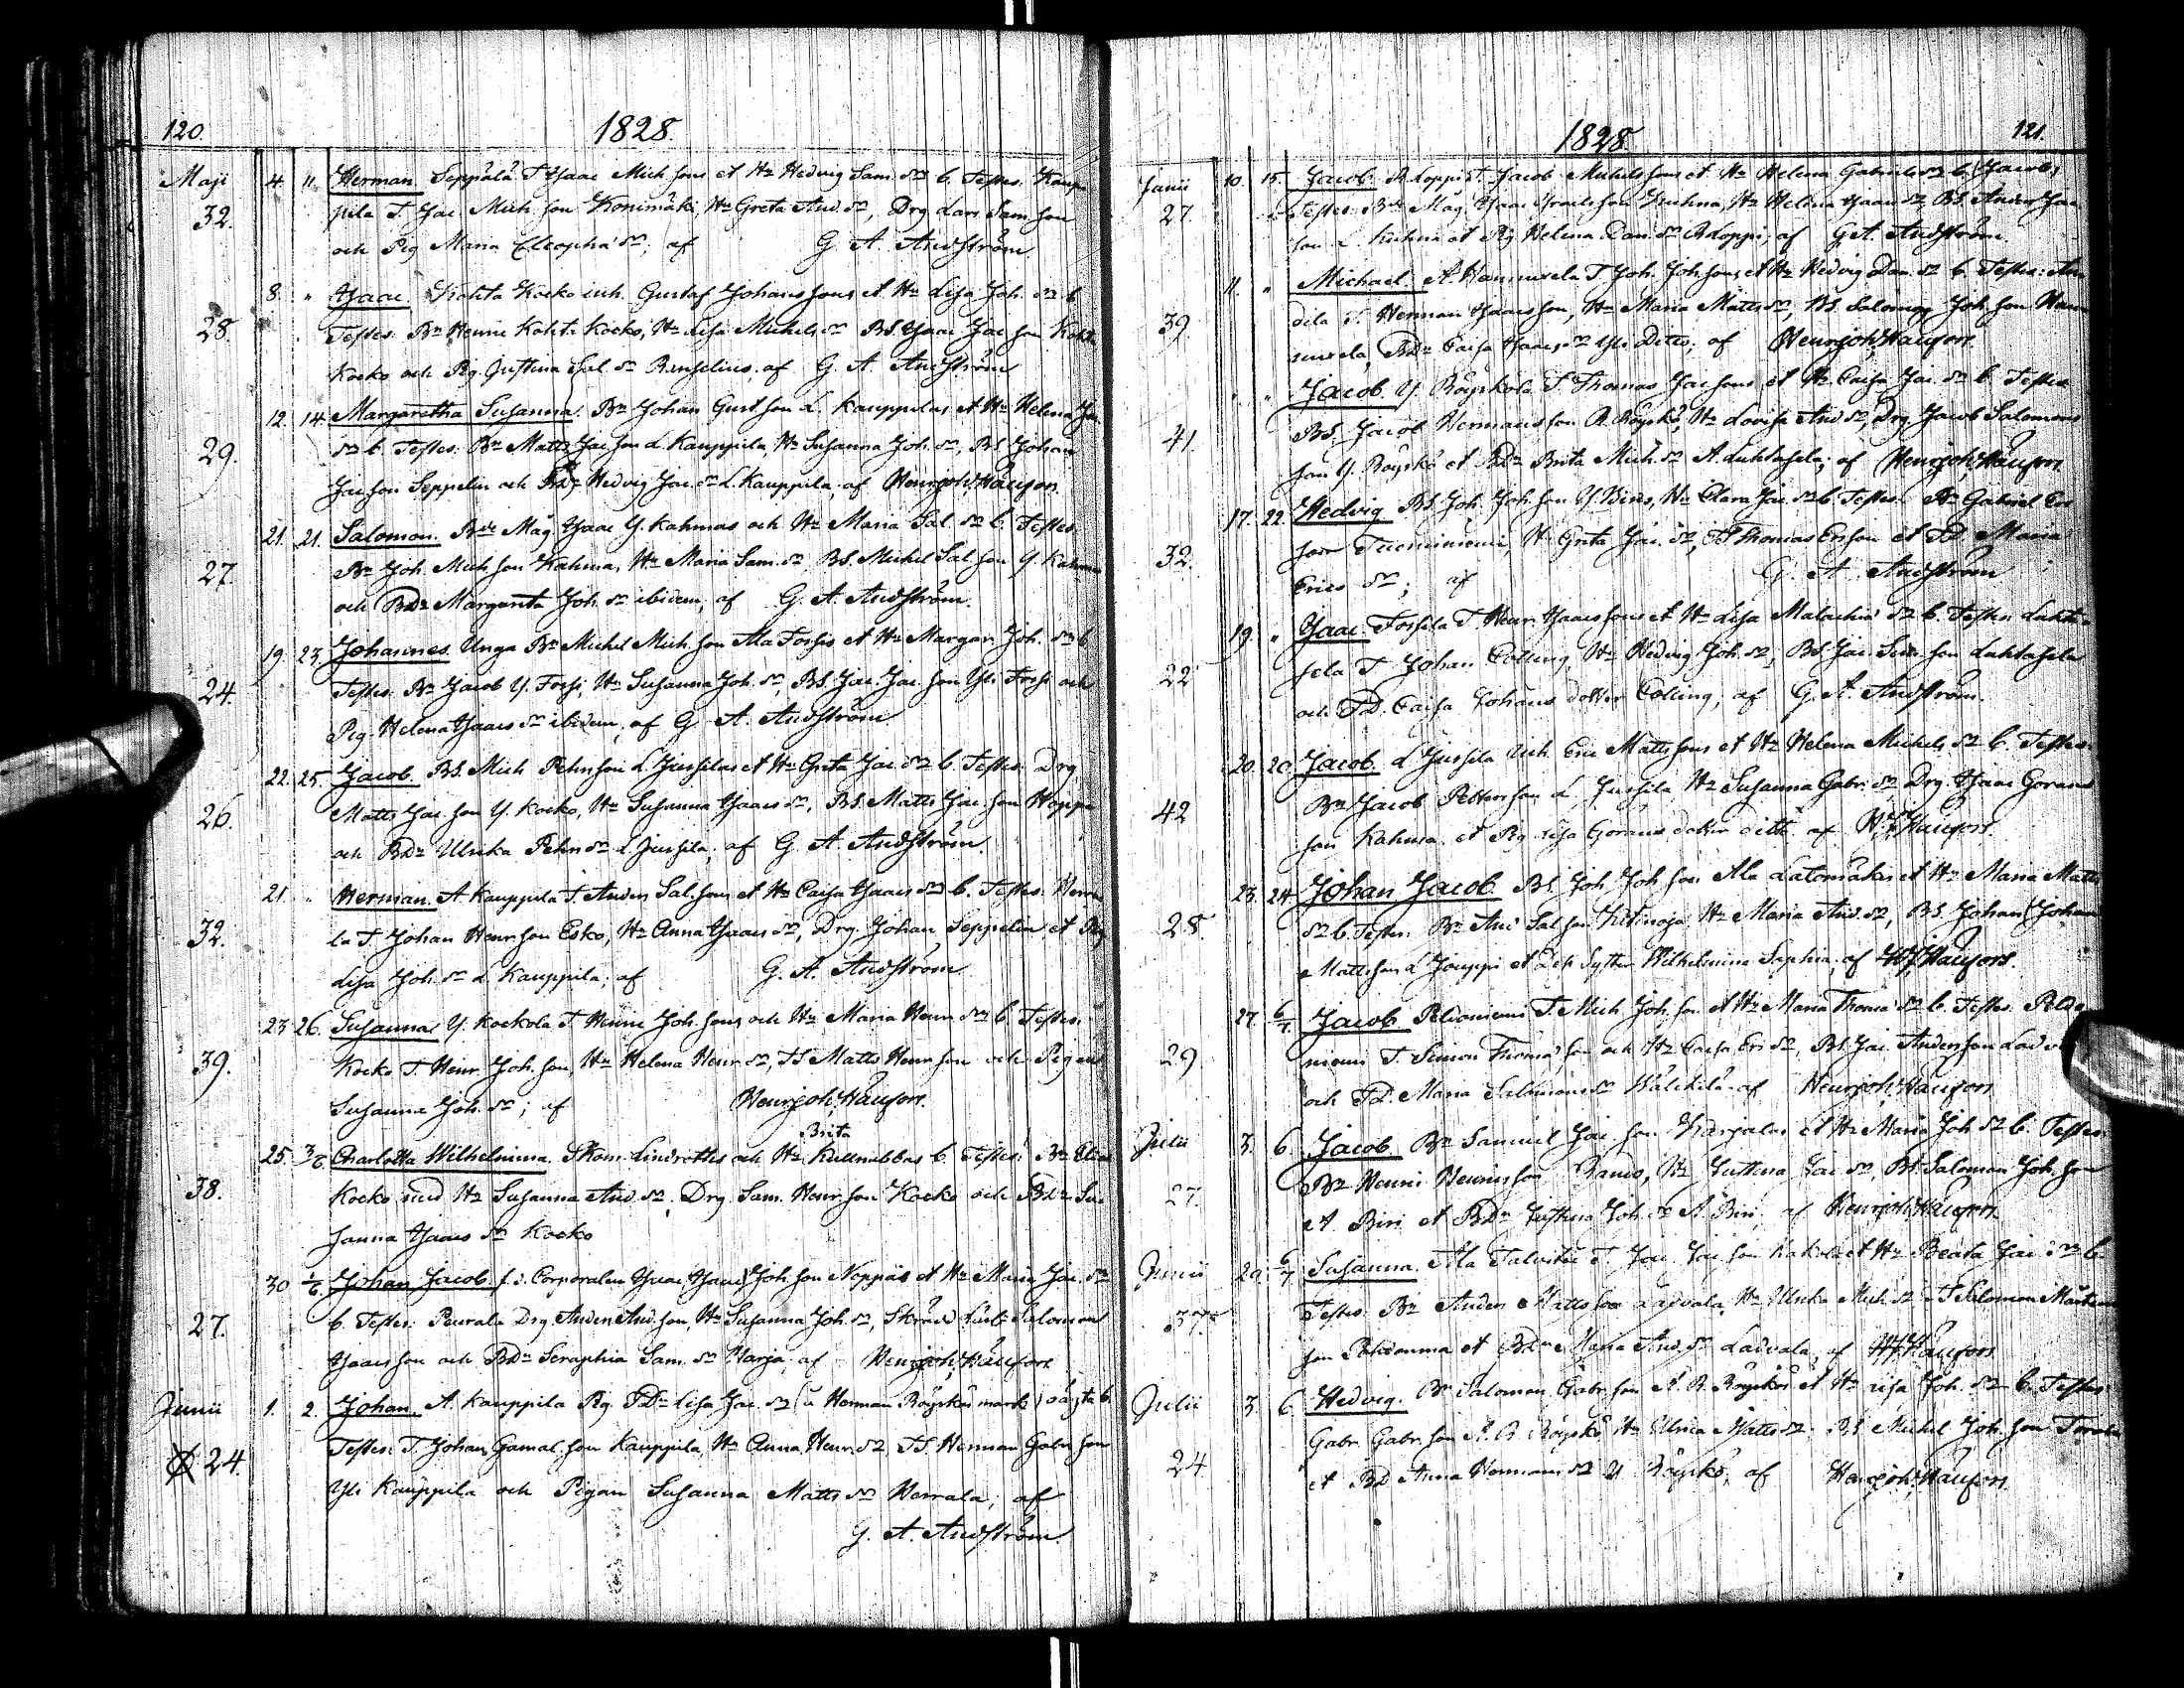 120. 1828.
Maji 4. 11. Herman. Seppälä T Isaac Mich. sons et Hu Hedvig Sam. dr b. Testes. Kaup-
32. pila T. Jac. Mich. son Konimäki, Hu Greta And. dr, Drg Lars Sam. son
och Pig Maria Cleophæ dr; af G. A. Andström
8. " Isaac. Kohta Kocko inh. Gustaf Johanssons et Hu Lisa Joh. dr b
28. Testes: Bn Henric Kohta Kocko, Hu Lisa Michels dr BS. Isaac Jac. son Kohta
Kocko och Pig. Justina Sal. dr Renselius, af G. A. Andström
12. 14. Margaretha Susanna. Bn Johan Gust. son L. Kauppilas et Hu Helena Jac.
29. dr b. Testes: Bn Matts Jac. son L. Kauppila, Hu Susanna Joh. dr, BS Johan
Jac. son Seppelin och BDr Hedvig Jac. dr L. Kauppila, af Henr. Joh. Haufors.
21. 21. Salomon. Bde Måg Isaac Y. Kahmas och Hu Maria Sal. dr b. Testes.
27. Bn Joh. Mich. son Kahma, Hu Maria Sam. dr, BS. Michel Sal. son Y. Kahma
och BDr Margareta Joh. dr ibidem, af G. A. Andström.
19. 23. Johannes. Unga Bn Michel Mich. son Ala Forsis et Hu Margar. Joh. dr b
24. Testes. Bn Jacob Y. Forsi, Hu Susanna Joh. dr, BS. Jac. Jac. son Yli Forsi och
Pig. Helena Isaacs dr ibidem, af G. A. Andström
22. 25. Jacob. BS. Mich Pehrson L. Jussilas et Hu Greta Jac. dr b. Testes. Drg
26. Matts Jac. son Y. Kocko, Hu Susanna Isaacs dr, BS. Matts Jac. son Hoppa
och BDr Ulrika Pehrs dr L. Jussila, af G. A. Andström.
21. " Herman. A. Kauppila T. Anders Sal. sons et Hu Caisa Isaacs dr b. Testes. Herra-
32. la T. Johan Henr. son Esko, Hu Anna Isaacs dr, Drg. Johan Seppelin et Pig
Lisa Joh. dr L. Kauppila; af G. A. Andström
23 26. Susanna. Y. Kockola T. Henric Joh. sons och Hu Maria Henr. dr b Testes.
39. Kocko T. Henr. Joh. son, Hu Helena Henr. dr, TS Matts Henr. son och Pigan
Susanna Joh. dr; af Henr. Joh. Haufors.
Brita
25. 3/6 Charlotta Wilhelmina. Skom. Lindroths och Hu Kullnubbas b. Testes: Bn Elias
38. Kocko med Hu Susanna And. dr, Drg. Sam. Henr. son Kocko och BDr Su-
sanna Isaacs dr Kocko
30 1/6 Johan Jacob. f. d. Corporalen Isaac Isaac Joh. son Noppas et Hu Maria Jac. dr
27. b. Testes: Peurala Drg Anders And. son, Hu Susanna Joh. dr, Skrädd. Lärl. Salomon
Isaacs son och BDr Seraphia Sam. dr Warja, af Henr. Joh. Haufors
Junii 1. 2. Johan. A. Kauppila Pig. TDr Lisa Jac. dr (u Herman Röyskös mark) oägta b.
24. Testes: T. Johan Gamal. son Kauppila, Hu Anna Henr. dr, TS Herman Gabr. son
Yli Kauppila och Pigan Susanna Matts dr Herrala, af
G. A. Andström.
1828. 121.
Junii 10. 15. Jacob. R. Loppi T. Jacob Michelssons et Hu Helena Gabriels dr b. Jacob,
27. Testes: Bde Måg Isaac Israelsson Kuhna, Hu Helena Isaacs dr, BS. Anders Jac.
son L. Kuhna et Pig Helena Dan. dr R. Loppi, af G. A. Andström.
11. " Michael. A. Hannuxela T Joh. Joh. sons et Hu Hedvig Dan. dr b. Testes:
39. dila T. Herman Isaacsson, Hu Maria Matts dr, BS. Salomon Joh. son Han-
nuxela, BDr Caisa Isaacs dr Yli Ditto, af Henr. Joh. Haufors
" " Jacob. Y. Röyskölä T Thomas Jac. sons et Hu Caisa Jac. dr b. Testes.
41. BS. Jacob Hermansson R. Röyskö, Hu Lovisa And. dr, Drg. Jacob Salomons
son Y. Röyskö et BDr Brita Mich. dr A. Luhtasela, af Henr. Joh. Haufors
17. 22. Hedvig. BS. Joh. Joh. son Y. Biris, Hu Clara Jac. dr b. Testes. Bn Gabriel Er.
32. son Tuominiemi, Hu Greta Jac. dr, TS Thomas Erson et TD. Maria
Erics dr; af G. A. Andström
19. " Isaac. Forsila T. Henr. Isaacssons et Hu Lisa Malachiæ dr b. Testes. Luhta-
22 sela T Johan Colling, Hu Hedvig Joh. dr, BS. Jac. Sim. son Luhtasela
och TD. Caisa Johans dotter Colling, af G. A. Andström.
20. 20. Jacob. L Jussila inh. Eric Mattssons et Hu Helena Michels dr b. Testes.
42 Bn Jacob Pettersson L. Jussila, Hu Susanna Gabr. dr Drg. Isaac Görans
son Kahma et Pig Lisa Görans dotter ditto af H. J. Haufors.
23. 24. Johan Jacob. BS. Joh. Joh. son Ala Latomäkis et Hu Maria Matts
28. dr b. Testes. Bn And. Sal. son Kitinoja, Hu Maria And. dr, BS. Johan Johan
Mattsson L Jouppi et Dess Syster Wilhelmina Sophia, af H. J. Haufors.
27. 6/7. Jacob. Peldoniemi T. Mich. Joh. son et Hu Maria Thomæ dr b. Testes. Peldo-
29 niemi T. Simon Thomæ son och Hu Caisa Eri dr, BS. Jac. Andersson
och TD. Maria Salomons dr Wälikylä, af Henr. Joh. Haufors
Julii 3. 6. Jacob. Bn Samuel Jac. son Karjalas et Hu Maria Joh. dr b. Testes.
27. Bn Henric Henricsson Rando, Hu Justina Jac. dr, BS. Salomon Joh. son
A. Biri et BDr Justina Joh. dr A. Biri, af Henr. Joh. Haufors
Junii 29. 6/7 Susanna. Ala Talvitie T. Jac. Jac. son Kakola et Hu Beata Jac. dr b.
37. Testes. Bn Anders Mattsson Ladvala, Hu Ulrika Mich. dr TS Salomon Mårtens
son et BDr Maria And. dr Ladvala, af H. J. Haufors
Julii 3. 6 Hedvig. Bn Salomon Gabr. son A. R. Röyskös et Hu Lisa Joh. dr b. Testes.
24 Gabr. Gabr. son A. R. Röyskö, Hu Ulrica Matts dr, BS. Michel Joh. son
et BD Anna Hermans dr U Röyskö, af Henr. Joh. Haufors